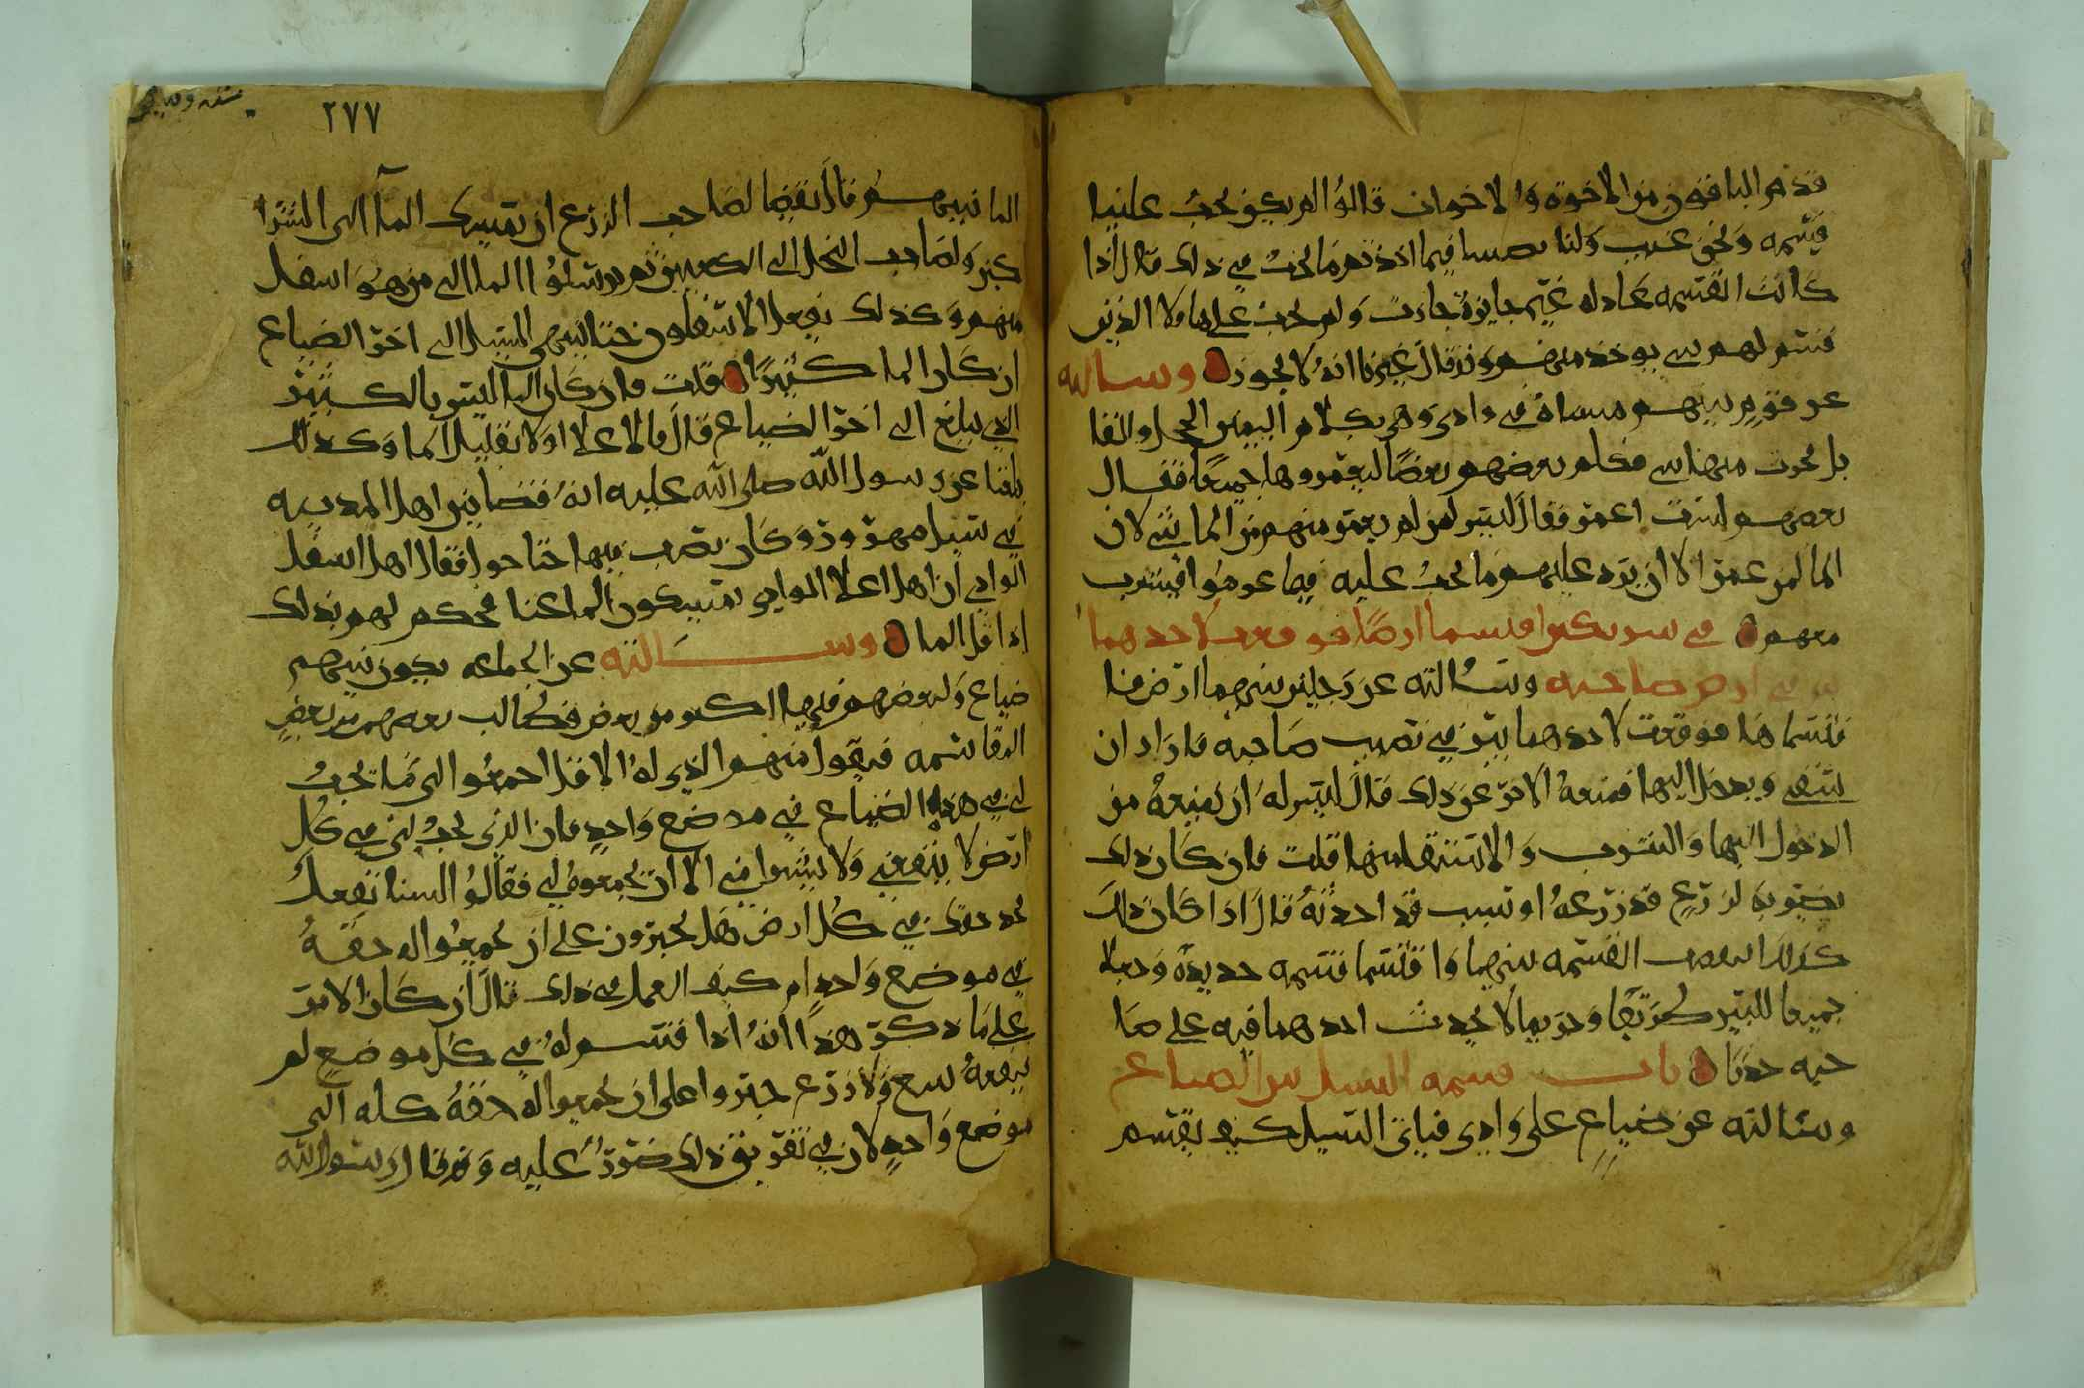 قدم الباقون من الاخوة والاخوان قالوا لم يكن يجب علينا
قسمه ونحن غيب ولنا نصيبنا فيما اخذتم ما يجب في ذلك قال اذا
كانت القسمه عادله غير جايزة جازت ولم يجب على هاولا الذين
قسم لهم شي يوخذ منهم وقد قال غيرنا انه لا يجوز وسالته
عن قوم بينهم مسناة في وادي وهي بكلام اليمن
فكلم بعضهم بعضا ليعمروها جميعا فقال
بعضهم لست اعمر فقال ليس لمن لم يعمر منهم من الما شي لان
الما لمن عمر الا ان يرد عليهم ما يجب عليه فيما عمروا فيشرب
معهم في شريكين اقتسما ارضا فوقعت لاحدهما
بير في ارض صاحبه وسالته عن رجلين بينهما ارض
فاقتسماها فوقعت لاحدهما بير في نصيب صاحبه فاراد ان
يستقي ويدخل اليها فمنعه الاخر عن ذلك قال ليس له ان يمنعه من
الدخول اليها والشرب والاستقا منها قلت فان كان ذلك
يضر به لزرع قد زرعه او لسبب قد احدثه قال اذا كان ذلك
كذلك انتقضت القسمه بينهما واقتسما قسمه جديدة وجعلا
جميعا للبير طريقا وحريما لا يحدث احدهما فيه على صا
حبه حدثا باب قسمه السيل بين الضياع
وسالته عن ضياع على وادي فياتي السيل كيف يقسم
٢٧٧
الما فيهم قال يقضا لصاحب الزرع ان يمسك الما الى الشرا
كين ولصاحب النخل الى الكعبين ثم يرسلوا الما الى من هو اسفل
منهم وكذلك يفعل الاسفلون حتا ينتهي السيل الى اخر الضياع
ان كان الما كثيرا قلت فان كان الما ليس بالكثير
الذي يبلغ الى اخر الضياع قال فالاعلا اولا بقليل الما وكذلك
بلغنا عن رسول الله صلى الله عليه انه قضا بين اهل المدينه
في سيل مهزور وكان يضرب فيها حتا حول فقال اهل اسفل
الوادي ان اهل اعلا الوادي يمسكون الما عنا فحكم لهم بذلك
اذا قل الما وسالته عن الجماعه يكون بينهم
ضياع ولبعضهم فيها اكثر من بعض فطالب بعضهم من بعض
المقاسمه فيقول منهم الذي له الاقل اجمعوا الي ما يجب
لي في هذه الضياع في موضع واحد فان الذي يجب لي في كل
ارض لا ينفعني ولا الا ان يجمعوه لي فقالوا لسنا نفعل
خذ حقك في كل ارض هل يجبرون على ان يجمعوا له حقه
في موضع واحد ام كيف العمل في ذلك قال ان كان الامر
على ما ذكر هذا انه اذا قسم له في كل موضع لم
ينفعه بيع ولا زرع جبروا على ان يجمعوا له حقه كله الى
موضع واحد لان في تفريق ذلك ضرر عليه وقد قال رسول الله